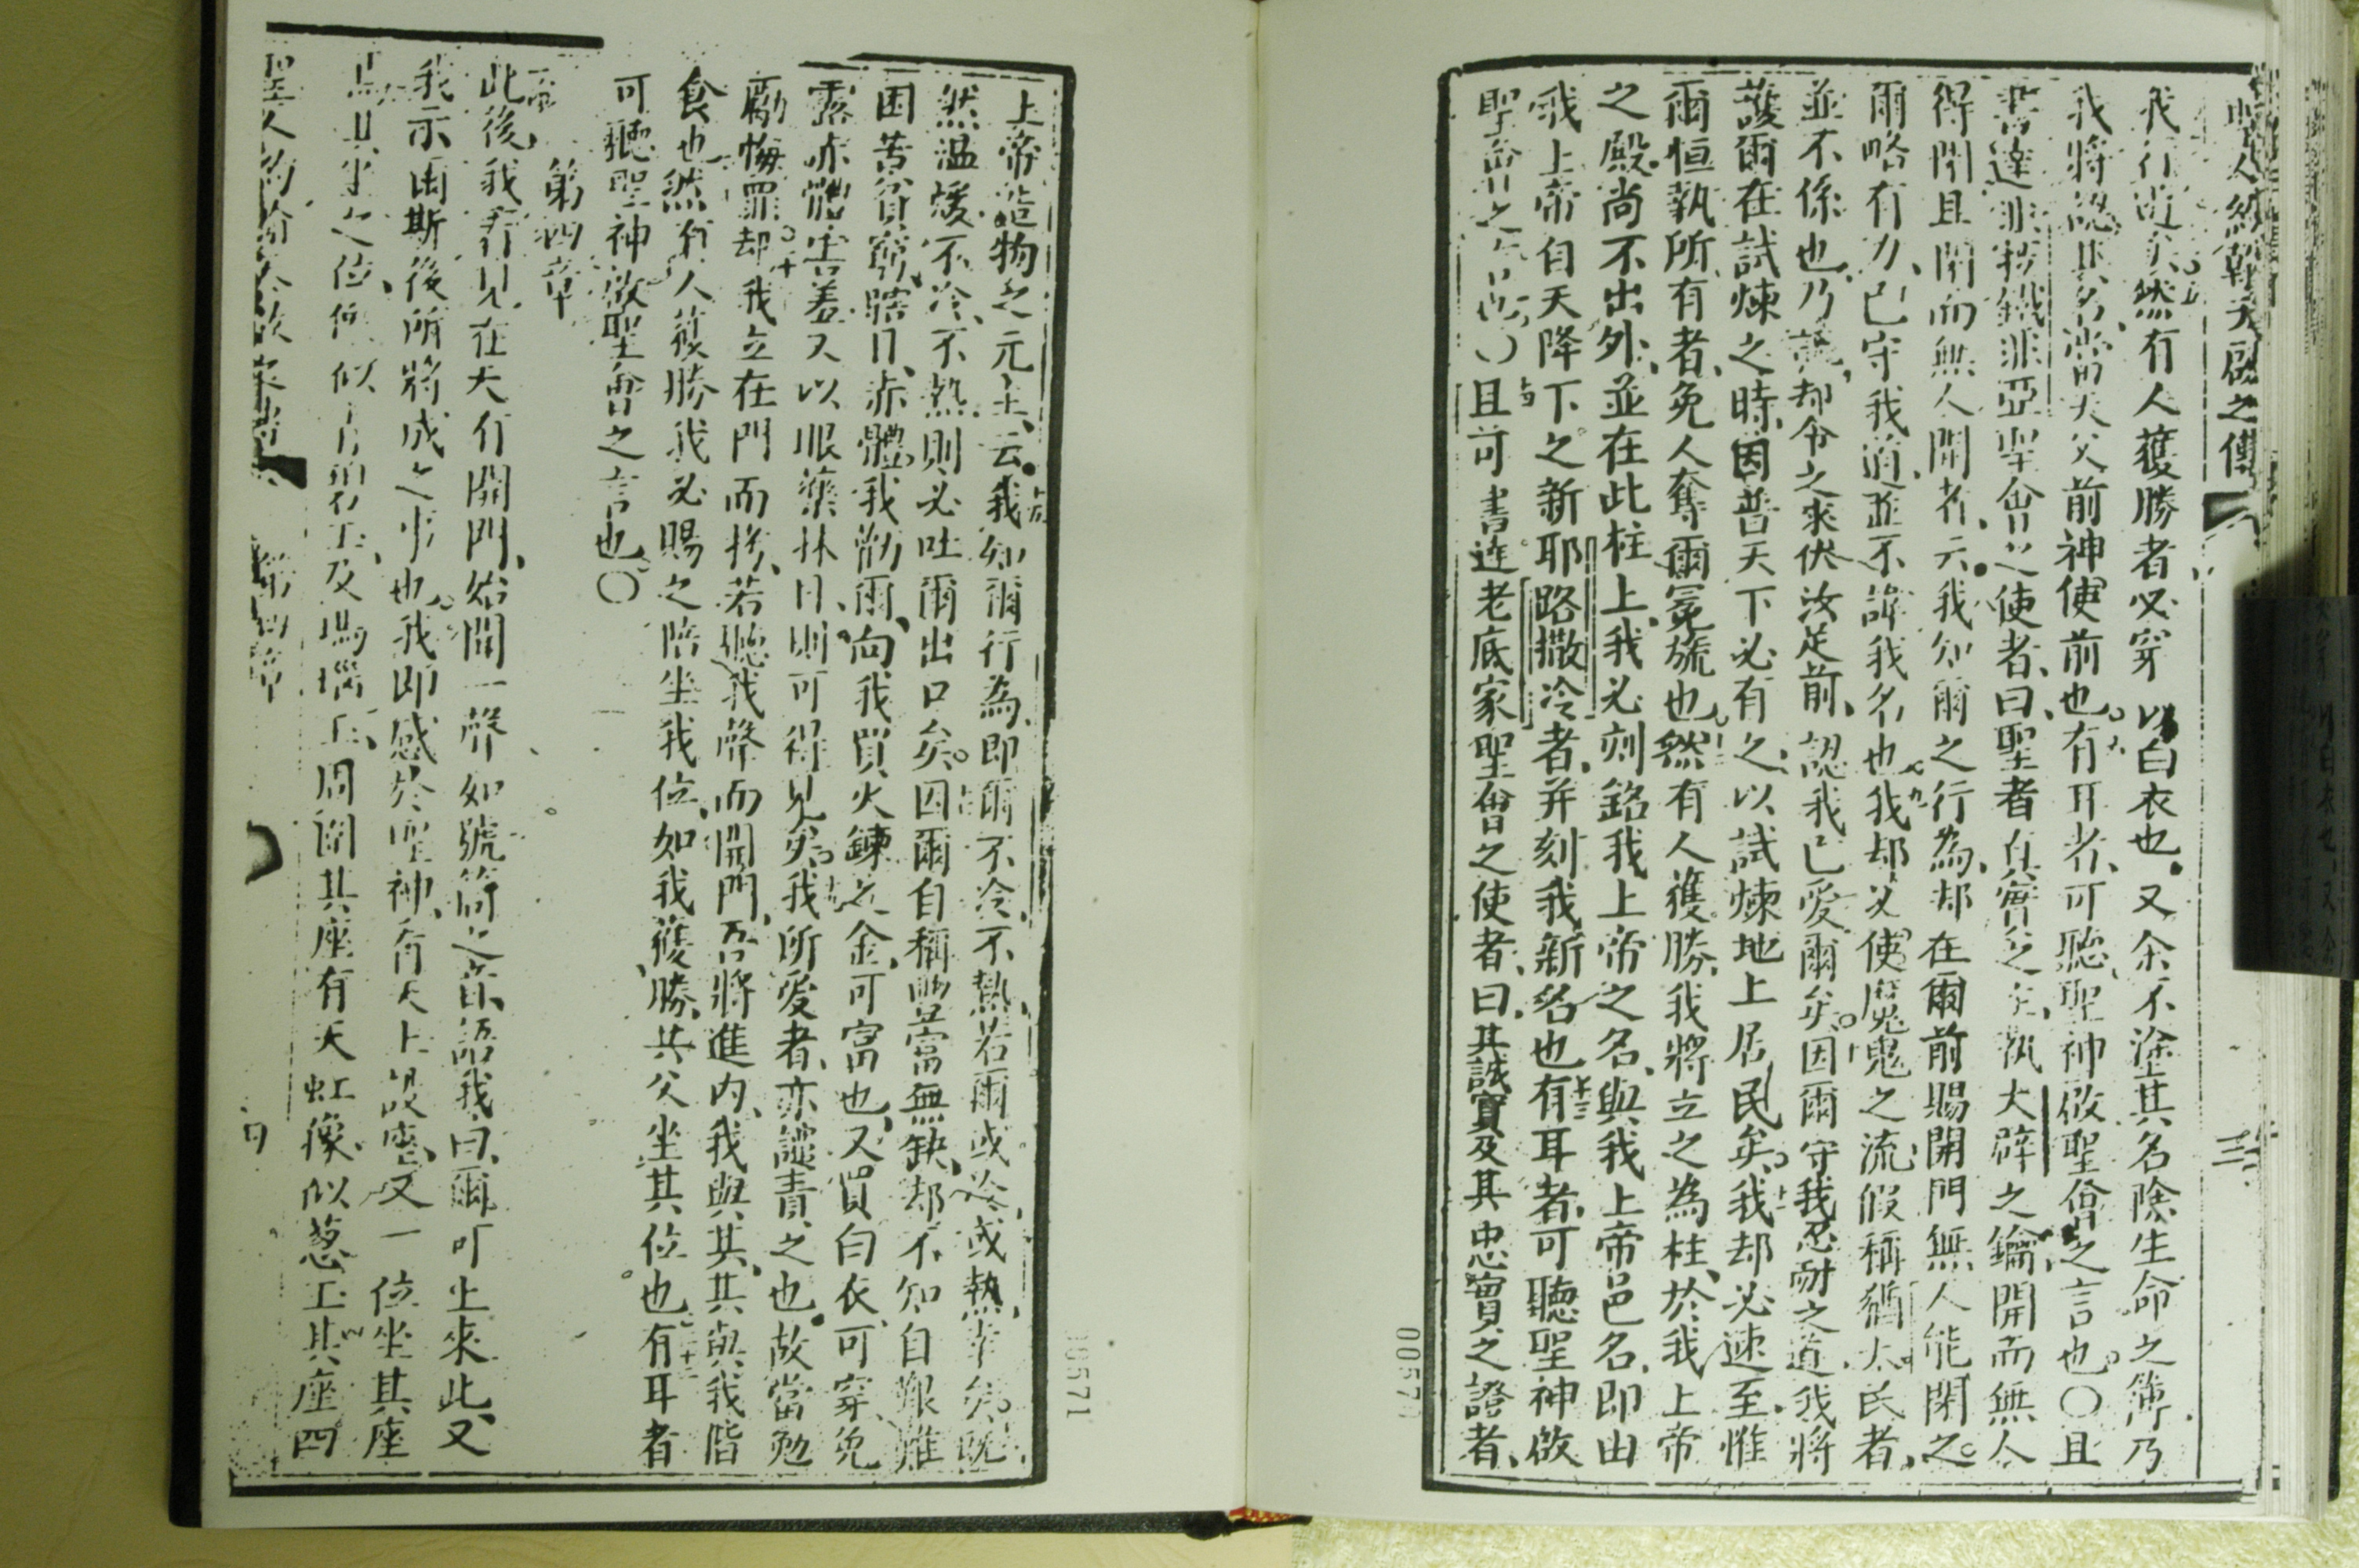 聖人約翰天啟之傳
我行近矣然有人獲勝者必穿以白衣也又余不塗其名除生命之簿乃
我將認其名當天父前神使前也有耳者可聽聖神啟聖會之言也〇且
書達非拉鐵非亞聖會之使者曰聖者真實之主執大辟之鑰開而無人
得閉且閉而無人開者云我知爾之行為却在爾前賜開門無人能閉之
爾略有力已守我道並不諱我名也我却必使魔鬼之流假稱猶太氏者
並不係也乃謊却令之來伏汝足前認我已愛爾矣因爾守我忍耐之道我將
護爾在試煉之時因普天下必有之以試煉地上居民矣我却必速至惟
爾恒執所有者免人奪爾冕旒也然有人獲勝我將立之為柱於我上帝
之殿尚不出外並在此柱上我必刻銘我上帝之名與我上帝邑名即由
我上帝自天降下之新耶路撒冷者并刻我新名也有耳者可聽聖神啟
聖會之言也〇且可書達老底家聖會之使者曰其誠實及其忠實之證者
三
上帝造物之元主云我知爾行為即爾不冷不熱若爾或冷或熱幸矣既
然溫煖不冷不熱則必吐爾出口矣因爾自稱豐富無缺却不知自艱難
困苦貧窮瞎目赤體我勸爾向我買火鍊之金可富也又買白衣可穿免
露赤體害羞又以眼藥抹目則可得見矣我所愛者亦譴責之也故當勉
勵悔罪却我立在門而扨若聽我聲而開門吾將進內我與其其與我偕
食也然有人獲勝我必賜之陪坐我位如我獲勝共父坐其位也有耳者
可聽聖神啟聖會之言也〇
第四章
此後我看見在天有開門始聞一聲如號筒之音語我曰爾可上來此又
我示爾斯後所將成之事也我即感於聖神有天上設座又一位坐其座
焉其坐之位像似碧玉及瑪瑙玉周圍其座有天虹像似蔥玉其座四
聖人約翰天啟之傳 第四章
00571